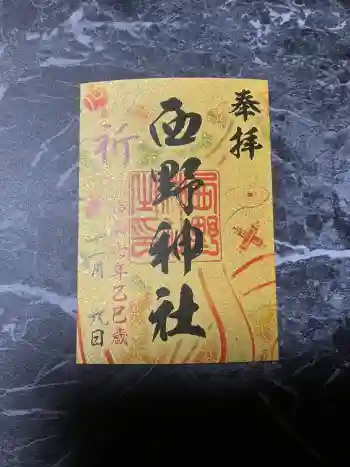 奉拝
西野神社
祈
令和七年乙巳歳
一月九日